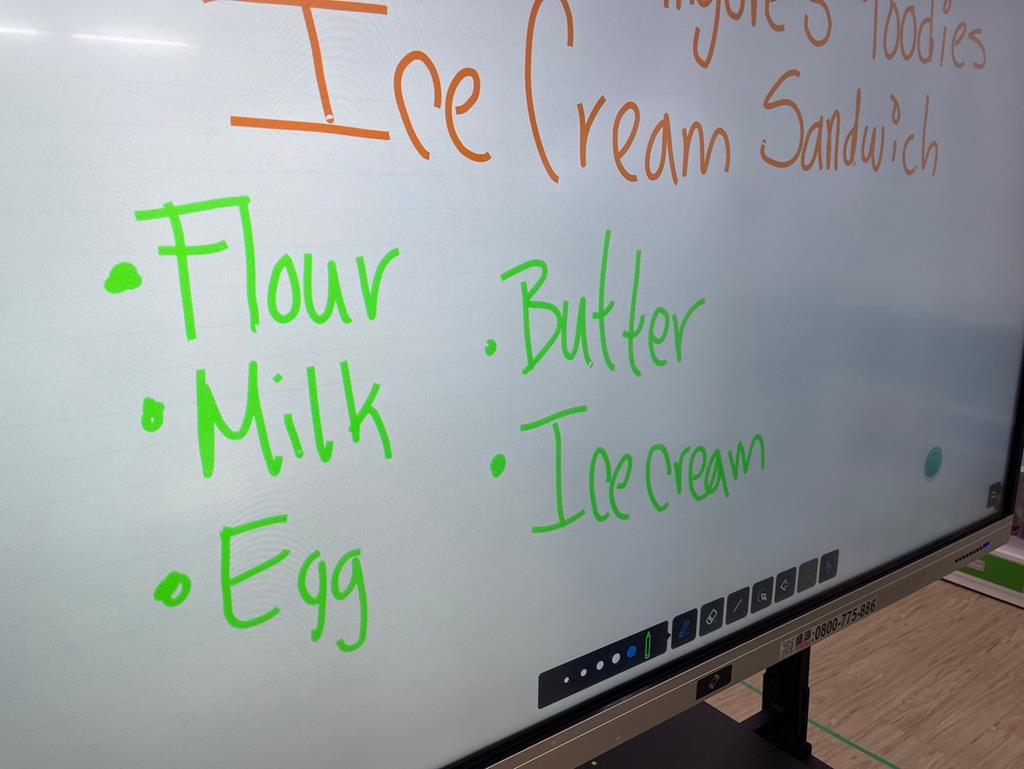 Foodies
Ice Cream Sandwich
• Flour
• Milk
• Egg
• Butter
• Ice cream
:0800-775-886